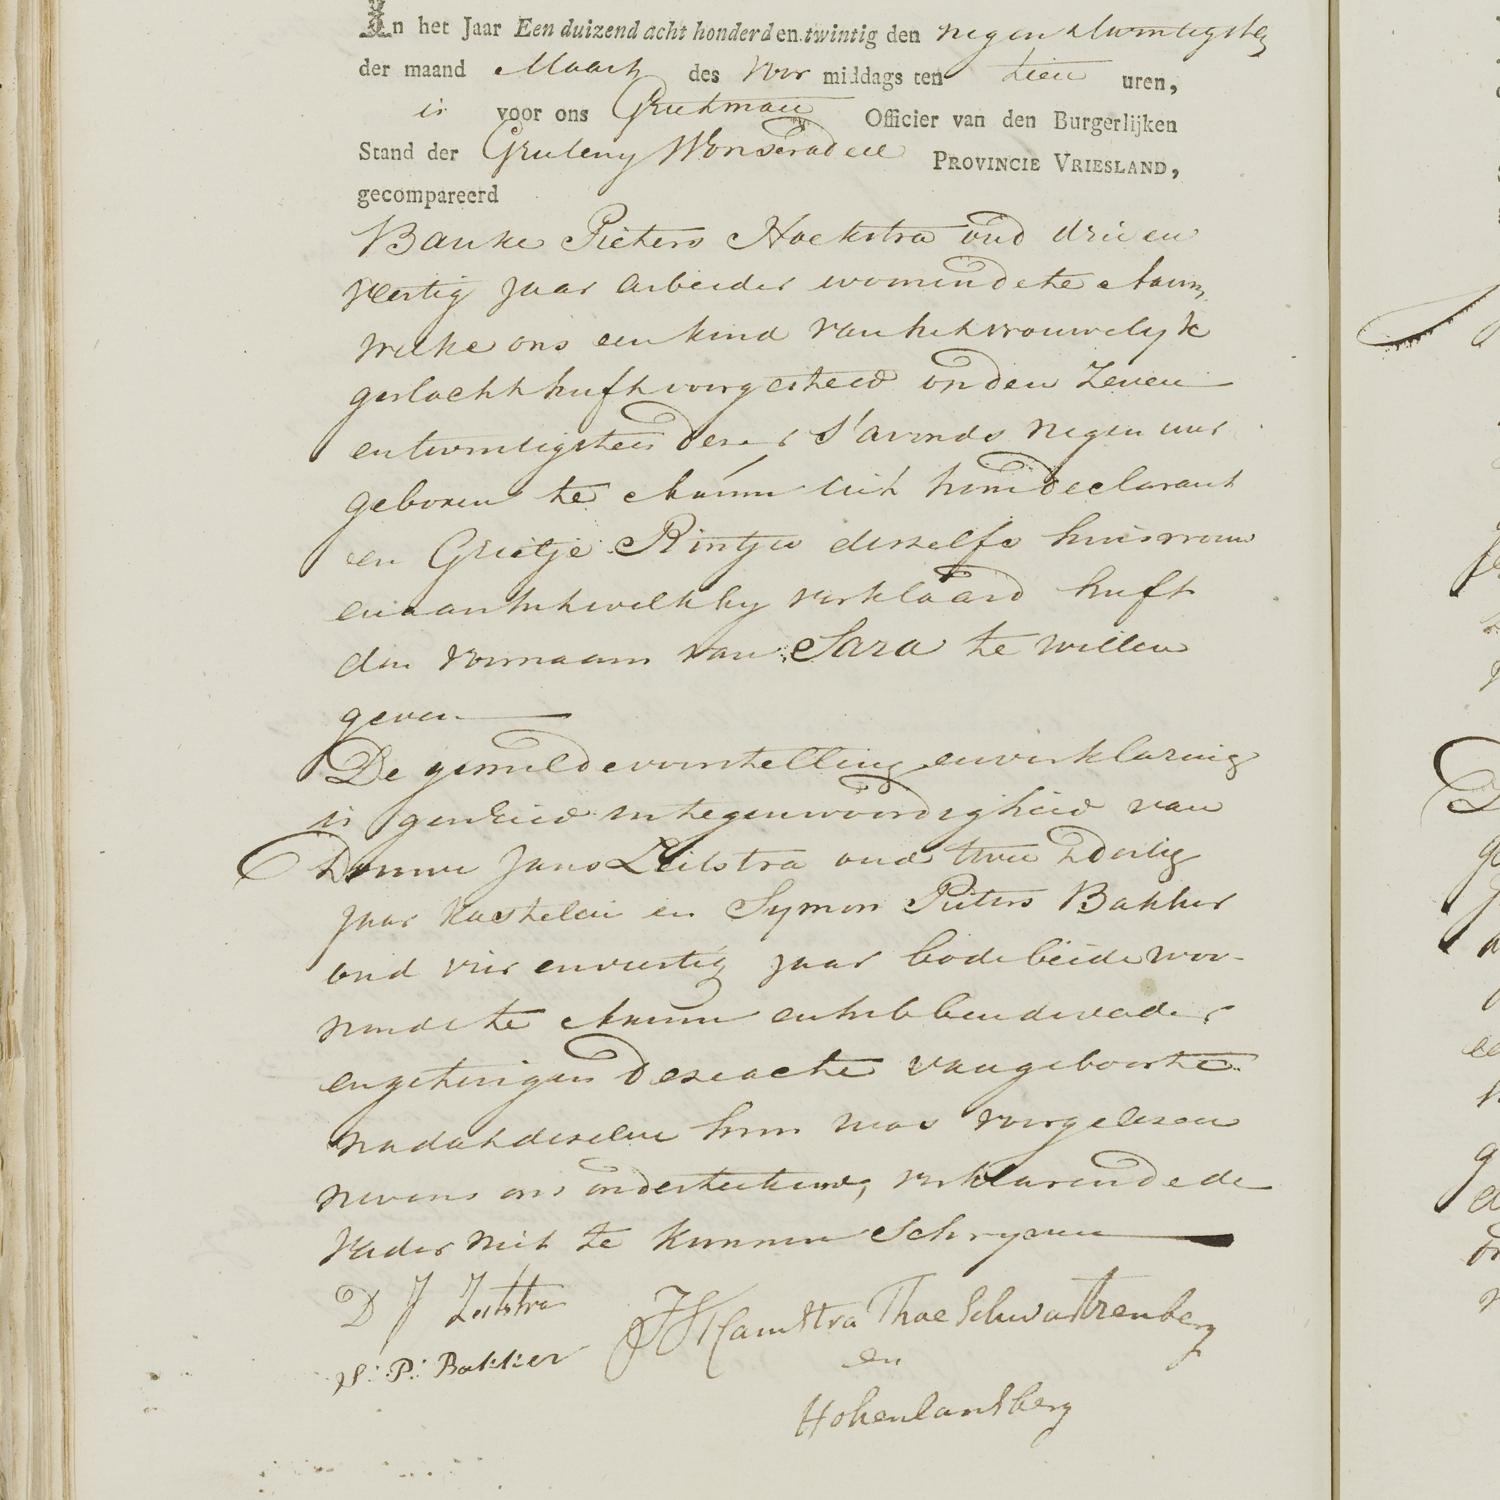 In het Jaar Een duizend acht honderd en twintig den negen en twintigsten
der maand Maart des voor middags ten tien uren,
is voor ons Grietman Officier van den Burgerlijken
Stand der Grieteny Wonseradeel PROVINCIE VRIESLAND,
gecompareerd
Bauke Pieters Hoekstra oud drie en
veertig jaar arbeider woonende te Arum,
welke ons een kind van het vrouwelyk
geslacht heeft voorgesteld op den Zeven
en twintigsten dezer s'avonds negen uur
geboren te Arum uit hem declarant
en Grietje Rintjes deszelfs huisvrouw
en aan het welk hy verklaard heeft
den voornaam van Sara te willen
geven
De gemelde voorstelling en verklaring
is geschied in tegenwoordigheid van
Douwe Jans Zeilstra oud twee & dertig
jaar kastelein en Symon Pieters Bakker
oud vier en veertig jaar bode beide woo-
nende te Arum en hebbende vader
en getuigen deze acte van geboorte
nadat dezelve hun was voorgelezen
nevens ons onderteekend, verklarende de
vader niet te kunnen schryven
D J Zeilstra
S: P: Bakker
Camstra Thoe Schwartzenberg
en
Hohenlansberg